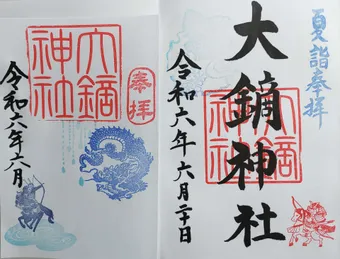 夏詣奉拝
大鏑神社
大鏑
神社
令和六年六月二十日
奉拝
大鏑
神社
令和六年六月